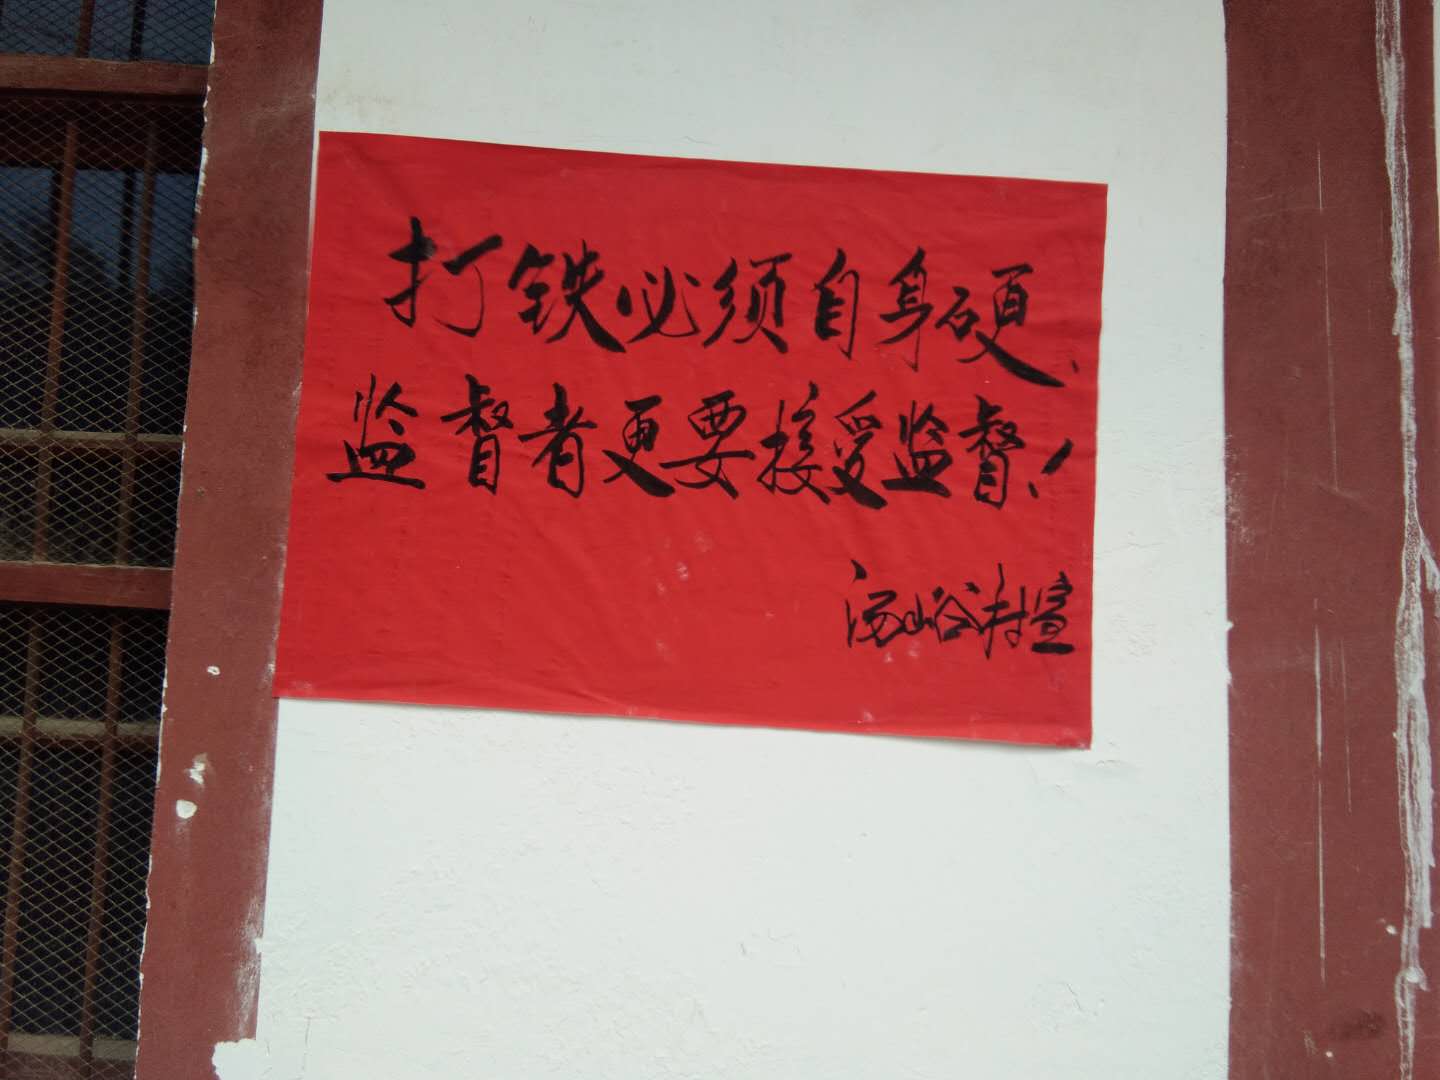 打铁必须自身硬、
监督者更要接受监督！
峪村宣